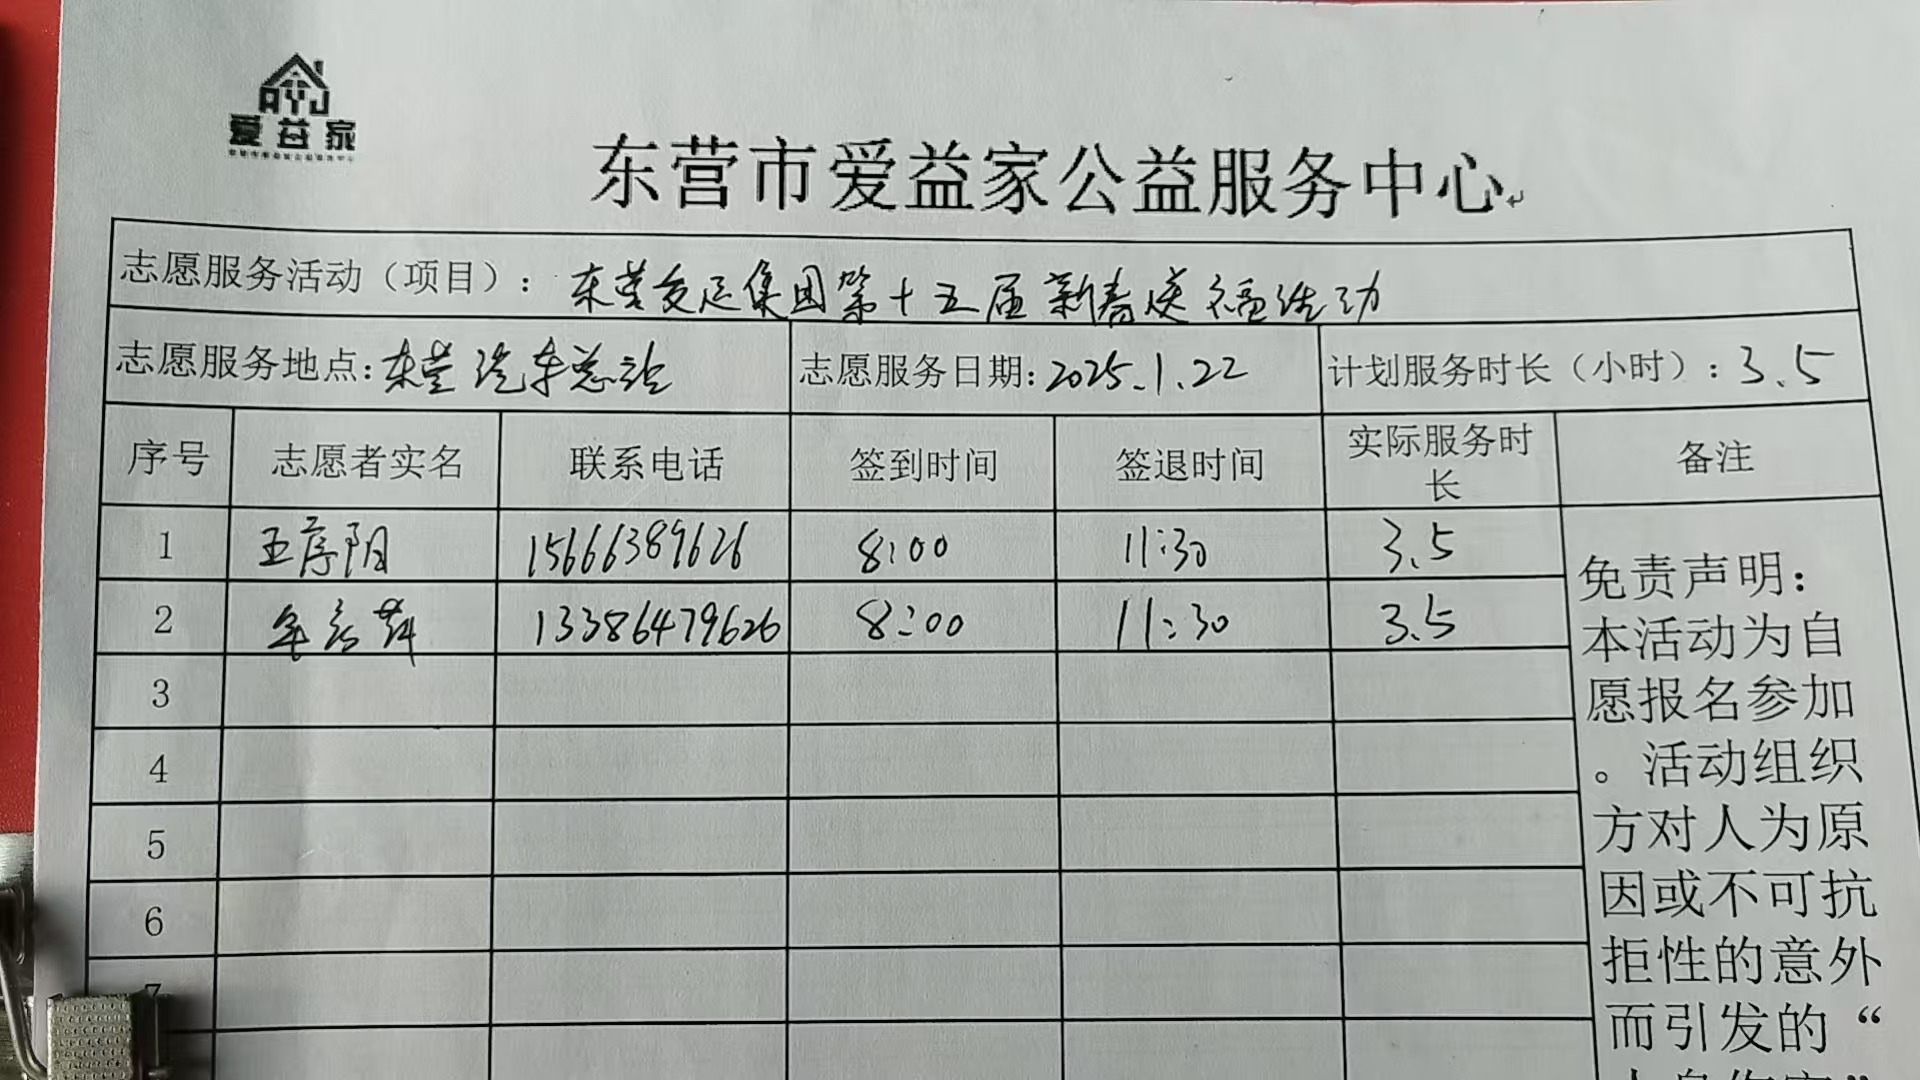 AYJ
爱益家
东营市爱益家公益服务中心
志愿服务活动（项目）：东营交运集团第十五届新春送福活动
志愿服务地点：东营汽车总站 志愿服务日期：2025.1.22 计划服务时长（小时）：3.5
序号 志愿者实名 联系电话 签到时间 签退时间 实际服务时长 备注
1 王序阳 15666389626 8:00 11:30 3.5
2 13386479626 8:00 11:30 3.5
3
4
5
6
7
免责声明：
本活动为自
愿报名参加
。活动组织
方对人为原
因或不可抗
拒性的意外
而引发的“